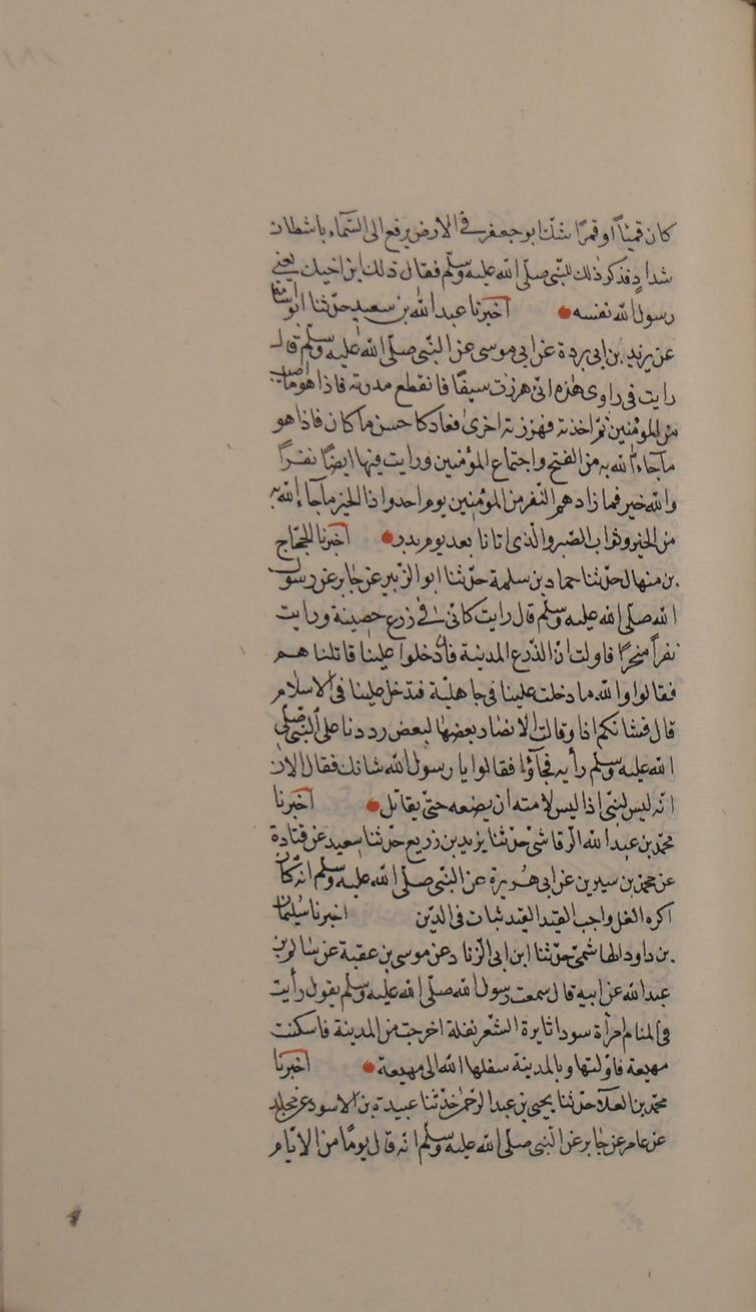 كان قميئاً او قمراً شك ابو جعفر في الارض يرفع الى السماء باشطان
شداد فذكر ذلك للنبي صلى الله عليه وسلم فقال ذلك ابن اخيك يعني
رسول الله نفسه اخبرنا عبد الله بن سعيد حدثنا ابو اسامة
عن يزيد بن ابي بردة عن ابي موسى عن النبي صلى الله عليه وسلم قال
رايت في راوى هذه انى هززت سيفاً فانقطع صدرته فاذا هو ما اصيب
من المؤمنين ثم اخذته فهززته اخرى فعاد كاحسن ما كان فاذا هو
ما جاء الله به من الفتح واجتماع المؤمنين ورايت فيها ايضاً نفراً
والله خير فما زادهم النفر من المؤمنين يوم احد واذا الخير ما جاء الله به
من الخير وثواب الصبر والذي اتانا بعد يوم بدر اخبرنا الحجاج
بن منهال حدثنا حماد بن سلمة حدثنا ابو الزبير عن جابر عن رسول
الله صلى الله عليه وسلم قال رايت كانى في درع حصينة ورايت
نفراً منحراً فاولت ان الدرع المدينة فادخلوا علينا قاتلناهم
فقالوا والله ما دخلت علينا في جاهلية فتدخل علينا في الاسلام
قال فشانكم اذا وقالت الانصار بعضها لبعض رددنا على النبي صلى
الله عليه وسلم رأيه فجاؤا فقالوا يا رسول الله شانك فقال الان
انه ليس لنبي اذا لبس لامته ان يضعه حتى يقاتل اخبرنا
محمد بن عبد الله الرقاشي حدثنا يزيد بن زريع حدثنا سعيد عن قتادة
عن محمد بن سيرين عن ابي هريرة عن النبي صلى الله عليه وسلم انه كان
اكره الغل واحب القيد القيد ثبات في الدين اخبرنا سليمان
بن داود الهاشمي حدثنا ابن ابي الزناد عن موسى بن عقبة عن سالم بن
عبد الله عن ابيه قال سمعت رسول الله صلى الله عليه وسلم يقول رأيت
في المنام امرأة سودا ثايرة الشعر نفلة اخرجت من المدينة فاسكنت
مهيعة فاولتها وبا المدينة ينقلها الله الى مهيعة اخبرنا
محمد بن العلاء حدثنا يحيى بن عبد الرحمن حدثنا عبيدة بن الاسود عن مجالد
عن عامر عن جابر عن النبي صلى الله عليه وسلم انه قال يوماً من الايام